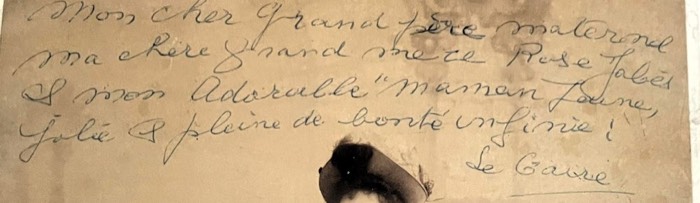 Mon cher Grand père maternel
ma chère grand mere Rose Jabès
& mon Adorable "maman Jeune,
Jolie & pleine de bonté infinie !
Le Caire